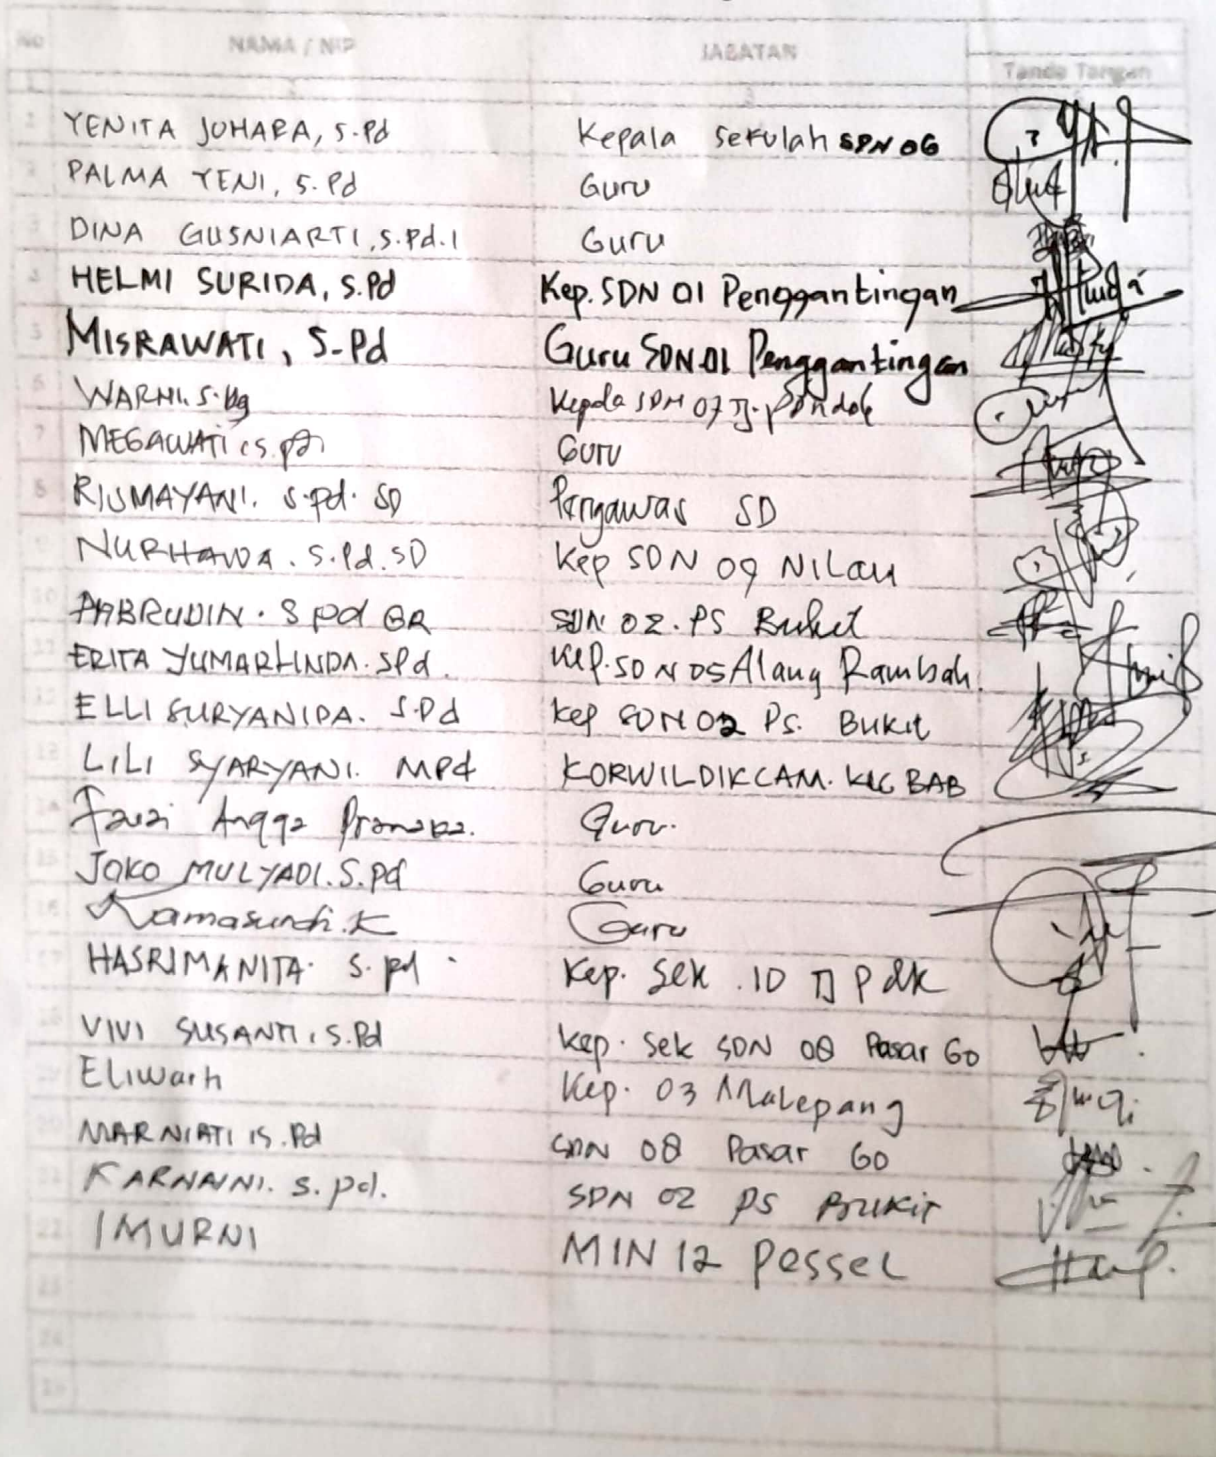 No NAMA / NIP JABATAN
Tanda Tangan
1 YENITA JOHARA, S.Pd Kepala Sekulah SDN 06
2 PALMA YENI, S.Pd Guru
3 DINA GUSNIARTI, S.Pd.I Guru
4 HELMI SURIDA, S.Pd Kep. SDN 01 Penggantingan
5 MISRAWATI, S.Pd Guru SDN 01 Penggantingan
6 WARNI. Kepala SDN 07 Tj. Pondok
7 MEGAWATI, S.Pd Guru
8 RISMAYANI. S.pd. SD Pengawas SD
9 NURHAWA. S.Pd. SD Kep SDN 09 NILau
10 S Pd GR SDN 02. PS Bukit
11 ERITA YUMARLINDA. SPd. Kep. SDN 05 Alang Rambah.
12 ELLI SURYANIDA. S.Pd Kep SDN 02 Ps. Bukit
13 LILI SYARYANI. MPd KORWILDIKCAM. KEC BAB
14 Fauzi Angga Guru.
15 JOKO MULYADI. S.Pd Guru
16 Guru
17 HASRIMANITA. S.pd Kep. Sek. 10 TJ Pdk
18 VIVI SUSANTI, S.Pd Kep. Sek SDN 08 Pasar Go
19 Kep. 03 Malepang
20 MARNIATI, S.Pd SDN 08 Pasar Go
21 KARNAINI. S.pd. SDN 02 PS Bukit
22 IMURNI MIN 12 Pessel
23
24
25